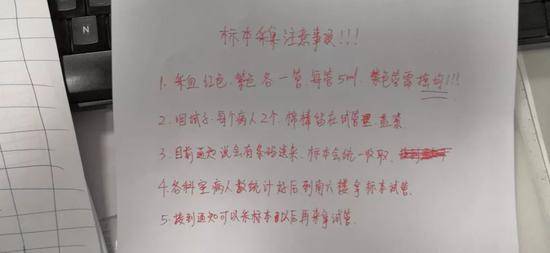 标本采集注意事项!!!
1. 采血红色、紫色各一管 每管5ml. 紫色管需摇均!!!
2. 咽拭子:每个病人2个. 棉棒留在试管里 盖紧
3. 目前通知说会有条码送来、标本会统一收取、
4. 各科室病人数统计好后到南六楼拿标本试管.
5. 接到通知可以采标本以后再来拿试管.
N